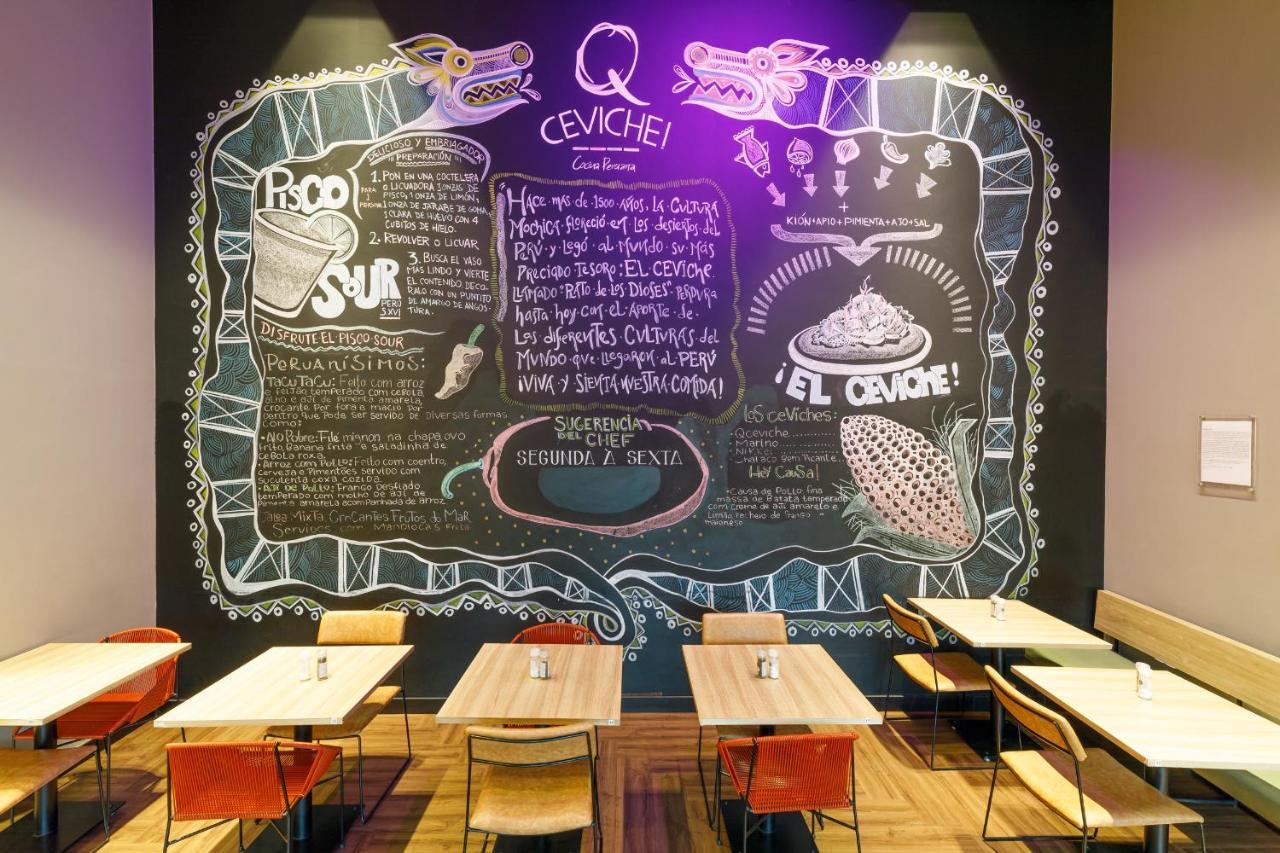 Q
CEVICHE!
Cocina Peruana
DELICIOSO Y EMBRIAGADOR
PREPARACIÓN
PISCO
SOUR
PERÚ
S.XVI
PARA
1
PERSONA
1. PON EN UNA COCTELERA
O LICUADORA 3 ONZAS DE
PISCO, 1 ONZA DE LIMÓN,
1 ONZA DE JARABE DE GOMA,
1 CLARA DE HUEVO CON 4
CUBITOS DE HIELO.
2. REVOLVER O LICUAR
3. BUSCA EL VASO
MAS LINDO Y VIERTE
EL CONTENIDO DECO-
RALO CON UN PUNTITO
DE AMARGO DE ANGOS-
TURA.
DISFRUTE·EL·PISCO·SOUR
PERUANÍSIMOS:
TACU TACU: Feito com arroz
e feijão temperado com cebola,
alho e ají de Pimenta amarela,
crocante Por fora e macio por
dentro que Pode ser servido de diversas formas
como:
·A lo Pobre: Filé mignon na chapa, ovo
frito, Banana frita e saladinha de
cebola roxa.
·Arroz com Pollo: Feito com coentro,
cerveja e Pimentões servido com
suculenta coxa cozida.
·Ají de Pollo: Frango Desfiado
temperado com molho de ají de
Pimenta amarela acompanhada de arroz
Jalea Mixta Crocantes Frutos do Mar
Servidos com Mandiocas Frita
HACE·MAS·DE·1500·AÑOS, LA·CULTURA
MOCHICA·FLORECIÓ·EN·LOS·DESIERTOS·DEL
PERÚ·Y·LEGÓ·AL·MUNDO·SU·MÁS
PRECIADO TESORO: EL·CEVICHE.
LLAMADO "PLATO·DE·LOS·DIOSES" PERDURA
HASTA·HOY·CON·EL·APORTE·DE·
LOS·DIFERENTES·CULTURAS·DEL
MUNDO·QUE·LLEGARON·AL·PERÚ
¡VIVA·Y·SIENTA·NUESTRA·COMIDA!
SUGERENCIA
DEL CHEF
SEGUNDA A SEXTA
+
KIÓN+APIO+PIMIENTA+AJO+SAL
¡EL CEVICHE!
LOS CEVICHES:
Qceviche...........
Marino............
Nikkei............
Chalaco Bem Picante.
HEY CAUSA!
·Causa de Pollo: fina
massa de Batata temperada
com creme de ají amarelo e
Limão, recheio de frango
maionese